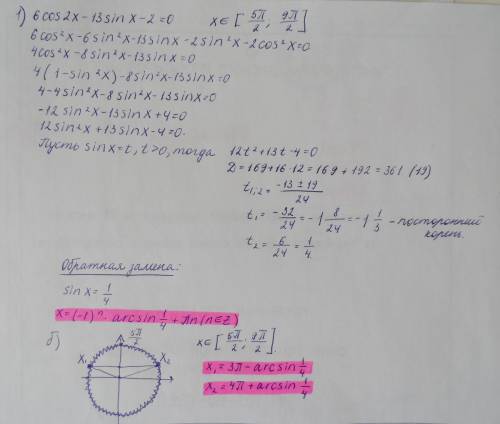 1) 6cos2x - 13sinx - 2 = 0 x∈[5π/2; 9π/2]
6cos²x - 6sin²x - 13sinx - 2sin²x - 2cos²x = 0
4cos²x - 8sin²x - 13sinx = 0
4(1 - sin²x) - 8sin²x - 13sinx = 0
4 - 4sin²x - 8sin²x - 13sinx = 0
-12sin²x - 13sinx + 4 = 0
12sin²x + 13sinx - 4 = 0.
Пусть sinx = t, t > 0, тогда 12t² + 13t - 4 = 0
D = 169 + 16·12 = 169 + 192 = 361 (19)
t₁,₂ = (-13 ± 19)/24
t₁ = -32/24 = -1 8/24 = -1 1/3 - посторонний корень.
t₂ = 6/24 = 1/4
Обратная замена:
sin x = 1/4
x = (-1)ⁿ · arcsin 1/4 + πn (n∈Z)
б) 5π/2 x∈[5π/2; 9π/2].
x₁ x₂
x₁ = 3π - arcsin 1/4
x₂ = 4π + arcsin 1/4